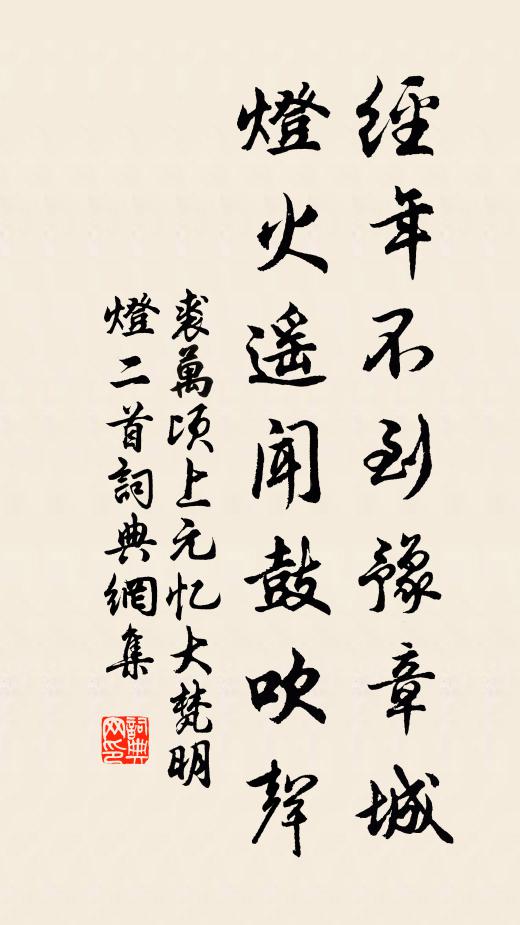 經年不到豫章城
燈火遥闻鼓吹聲
裘萬頃上元忆大梵明
燈二首詞典網集
詞典
网印